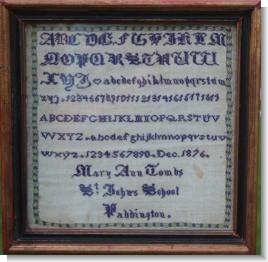 ABCDEFGHIJKLM
NOPQRSTUVW
XYZ abcdefghijklmnopqrstuvw
xyz 1234567891011121314151617181
ABCDEFGHIJKLMNOPQRSTUV
WXYZ. abcdefghijklmnopqrstuv
wxyz. 1234567890. Dec. 1876.
Mary Ann Tombs
St Johns School
Paddington.